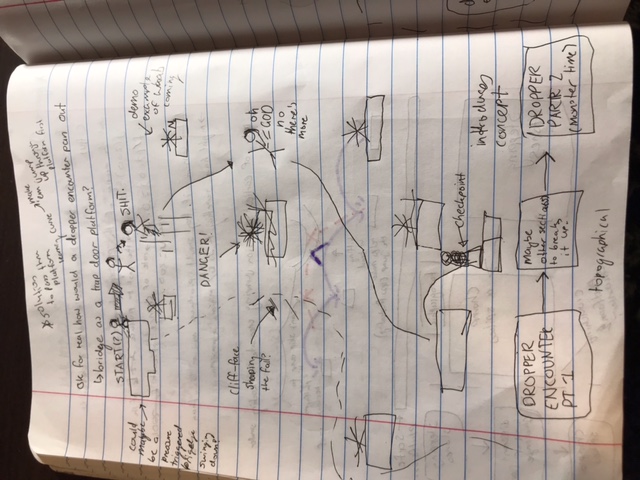 *solution
to pass thru
platform
learning curve
make
em jump
up through
platform first
ok for real how would a dropper encounter pan out
↳ bridge as a trap door platform?
START(?)
SHIT.
could
maybe
be a
pressure
triggered
bridge
swinging
down?
demo
example
of what's
coming
DANGER!
cliff-face
shaping
the fall?
oh
GOD
no
there's
more
checkpoint
introduces
concept
DROPPER
ENCOUNTER
PT 1
Maybe
other sections
to break
it up?
DROPPER
PART 2
(monster time)
topographical